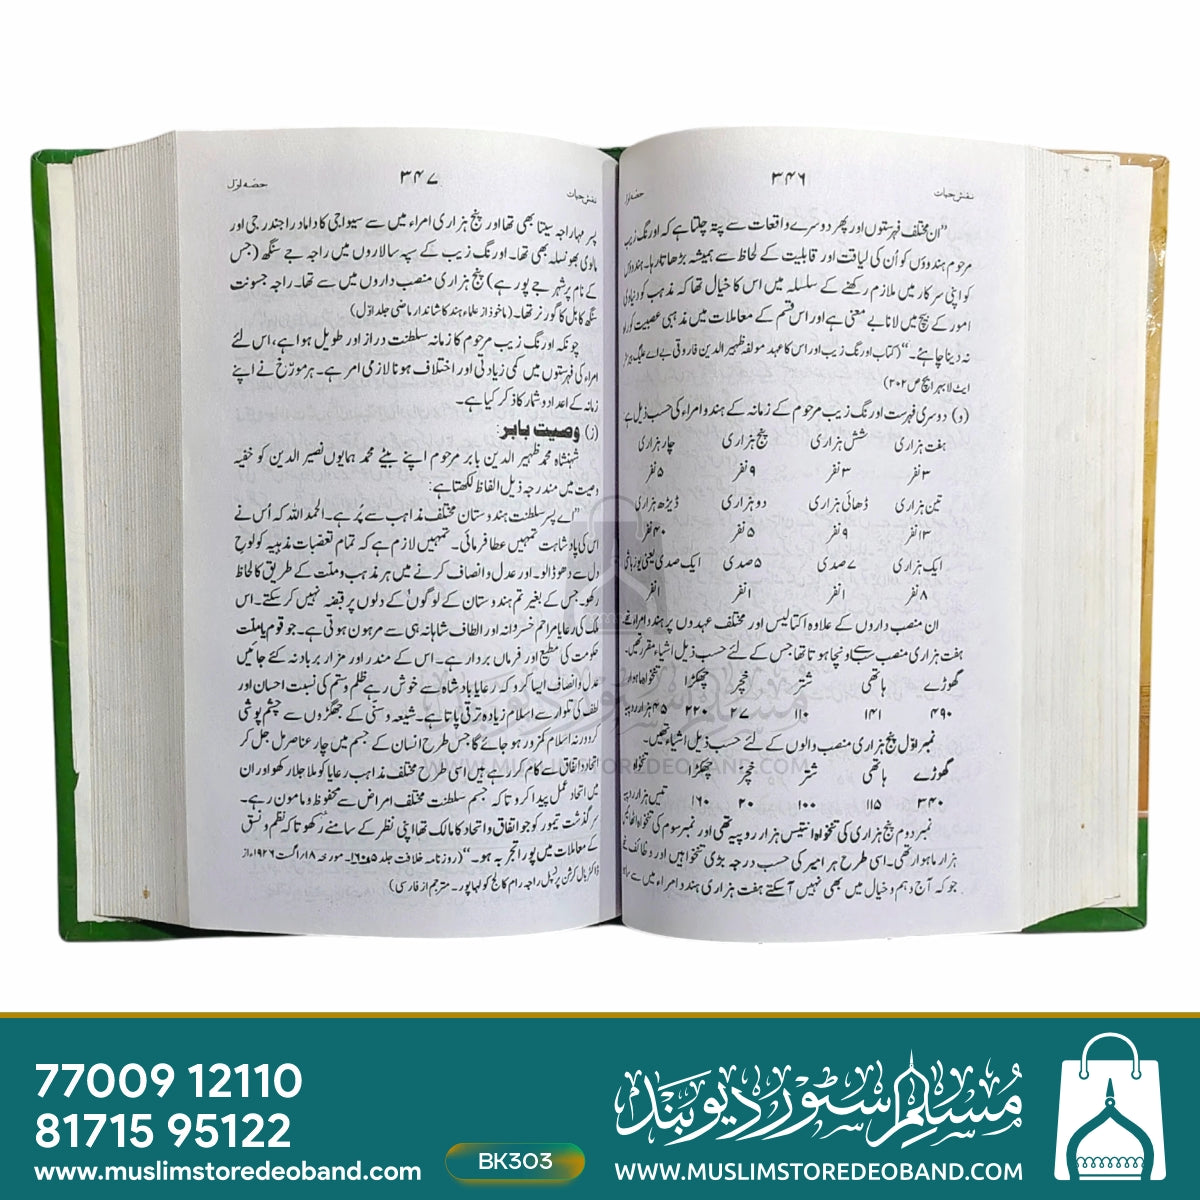 نقش حیات
۳۴۶
حصہ اول
"ان مختلف فہرستوں اور پھر دوسرے واقعات سے پتہ چلتا ہے کہ اورنگ زیب
مرحوم ہندوؤں کو اُن کی لیاقت اور قابلیت کے لحاظ سے ہمیشہ بڑھاتا رہا۔ ہندوؤں
کو اپنی سرکار میں ملازم رکھنے کے سلسلہ میں اس کا خیال تھا کہ مذہب کو دنیاوی
امور کے بیچ میں لانا بے معنی ہے اور اس قسم کے معاملات میں مذہبی عصبیت کو راہ
نہ دینا چاہئے۔" (کتاب اورنگ زیب اور اس کا عہد مولفہ ظہیر الدین فاروقی بی اے علیگ بیرسٹر
ایٹ لا بہرائچ ص ۲۰۲)
(و) دوسری فہرست اورنگ زیب مرحوم کے زمانہ کے ہندو امراء کی حسب ذیل ہے
ہفت ہزاری شش ہزاری پنج ہزاری چار ہزاری
۳ نفر ۳ نفر ۹ نفر ۵ نفر
تین ہزاری ڈھائی ہزاری دو ہزاری ڈیڑھ ہزاری
۱۳ نفر ۹ نفر ۵ نفر ۴۰ نفر
ایک ہزاری ۷ صدی ۵ صدی ایک صدی یعنی یوز باشی
۸ نفر ۱ نفر ۱ نفر ۱ نفر
ان منصب داروں کے علاوہ اکتالیس اور مختلف عہدوں پر ہندو امراء تھے
ہفت ہزاری منصب سب سے اونچا ہوتا تھا جس کے لئے حسب ذیل اشیاء مقرر تھیں۔
گھوڑے ہاتھی شتر خچر چھکڑا تنخواہ ماہوار
۴۹۰ ۱۴۱ ۱۱۰ ۲۷ ۲۲۰ ۴۵ ہزار روپیہ
نمبر اوّل پنج ہزاری منصب والوں کے لئے حسب ذیل اشیاء تھیں۔
گھوڑے ہاتھی شتر خچر چھکڑا تنخواہ
۳۴۰ ۱۱۵ ۱۰۰ ۲۰ ۱۶۰ تیس ہزار روپیہ
نمبر دوم پنج ہزاری کی تنخواہ انتیس ہزار روپیہ تھی اور نمبر سوم کی تنخواہ اٹھائیس
ہزار ماہوار تھی۔ اسی طرح ہر امیر کی حسب درجہ بڑی تنخواہیں اور وظائف تھے
جو کہ آج وہم و خیال میں بھی نہیں آسکتے ہفت ہزاری ہندو امراء میں سے
نقش حیات
۳۴۷
حصہ اوّل
پسر مہاراجہ سیتا بھی تھا اور پنج ہزاری امراء میں سے سیواجی کا داماد راجندر جی اور
مالوی بھونسلہ بھی تھا۔ اورنگ زیب کے سپہ سالاروں میں راجہ جے سنگھ (جس
کے نام پر شہر جے پور ہے) پنج ہزاری منصب داروں میں سے تھا۔ راجہ جسونت
سنگھ کابل کا گورنر تھا۔ (ماخوذ از علماء ہند کا شاندار ماضی جلد اوّل)
چونکہ اورنگ زیب مرحوم کا زمانہ سلطنت دراز اور طویل ہوا ہے، اس لئے
امراء کی فہرستوں میں کمی زیادتی اور اختلاف ہونا لازمی امر ہے۔ ہر مورّخ نے اپنے
زمانہ کے اعداد و شمار کا ذکر کیا ہے۔
(ز) وصیت بابر:
شہنشاہ محمد ظہیر الدین بابر مرحوم اپنے بیٹے محمد ہمایوں نصیر الدین کو خفیہ
وصیت میں مندرجہ ذیل الفاظ لکھتا ہے:
"اے پسر سلطنت ہندوستان مختلف مذاہب سے پُر ہے۔ الحمد اللہ کہ اُس نے
اس کی بادشاہت تمہیں عطا فرمائی۔ تمہیں لازم ہے کہ تمام تعصبات مذہبیہ کو لوحِ
دل سے دھو ڈالو۔ اور عدل و انصاف کرنے میں ہر مذہب و ملت کے طریق کا لحاظ
رکھو۔ جس کے بغیر تم ہندوستان کے لوگوں کے دلوں پر قبضہ نہیں کر سکتے۔ اس
ملک کی رعایا مراحم خسروانہ اور الطاف شاہانہ ہی سے مرہون ہوتی ہے۔ جو قوم یا ملت
حکومت کی مطیع اور فرماں بردار ہے۔ اس کے مندر اور مزار برباد نہ کئے جائیں
عدل و انصاف ایسا کرو کہ رعایا بادشاہ سے خوش رہے ظلم و ستم کی نسبت احسان اور
لطف کی تلوار سے اسلام زیادہ ترقی پاتا ہے۔ شیعہ و سنّی کے جھگڑوں سے چشم پوشی
کرو ورنہ اسلام کمزور ہو جائے گا جس طرح انسان کے جسم میں چار عناصر مل جل کر
اتحاد و اتفاق سے کام کر رہے ہیں اسی طرح مختلف مذاہب رعایا کو ملا جلا رکھو اور ان
میں اتحاد عمل پیدا کرو تاکہ جسم سلطنت مختلف امراض سے محفوظ و مامون رہے۔
سرگذشت تیمور کو جو اتفاق و اتحاد کا مالک تھا اپنی نظر کے سامنے رکھو تاکہ نظم و نسق
کے معاملات میں پورا تجربہ ہو۔" (روزنامہ خلافت جلد ۵-۱۶۰ مورخہ ۱۸ اگست ۱۹۲۶ء از
ڈاکٹر بال کرشن پرنسپل راجہ رام کالج کولہاپور۔ مترجم از فارسی)
مسلم سٹور دیوبند
WWW.MUSLIMSTOREDEOBAND.COM
77009 12110
81715 95122
www.muslimstoredeoband.com
BK303
مسلم سٹور دیوبند
WWW.MUSLIMSTOREDEOBAND.COM